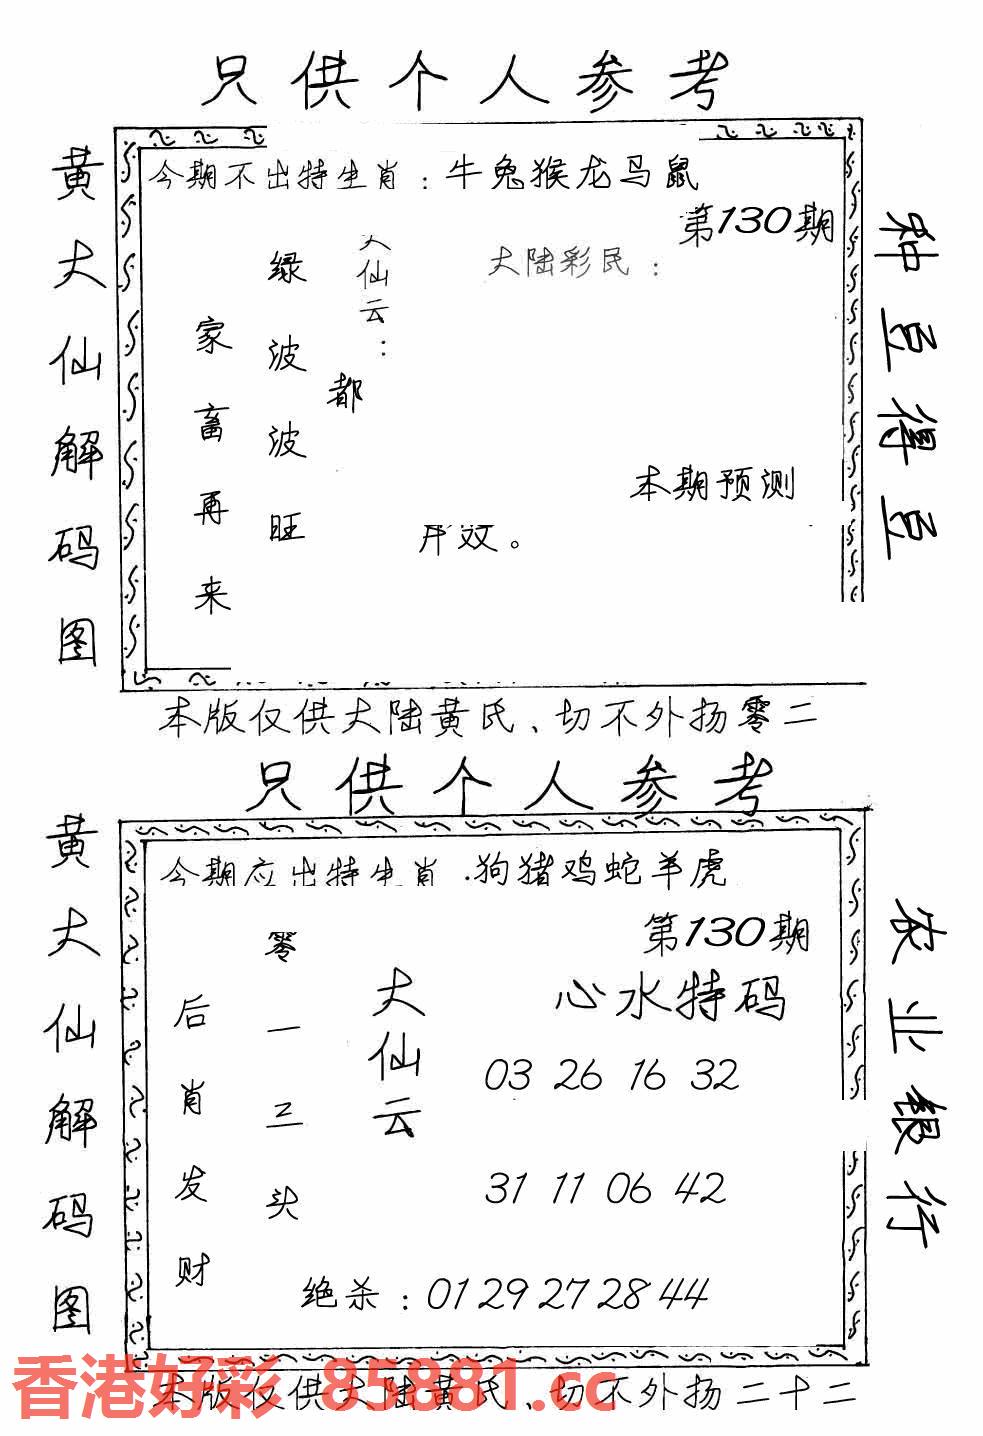 只供个人参考
黄大仙解码图
今期不出特生肖：牛兔猴龙马鼠
第130期
种豆得豆
大陆彩民：
大仙云：
绿波波旺
家畜再来
都
本期预测
效。
本版仅供大陆黄氏、切不外扬零二
只供个人参考
黄大仙解码图
今期应出特生肖.狗猪鸡蛇羊虎
第130期
农业银行
心水特码
大仙云
零一三头
后肖发财
03 26 16 32
31 11 06 42
绝杀：01 29 27 28 44
香港好彩 85881.cc
本版仅供大陆黄氏、切不外扬二十二